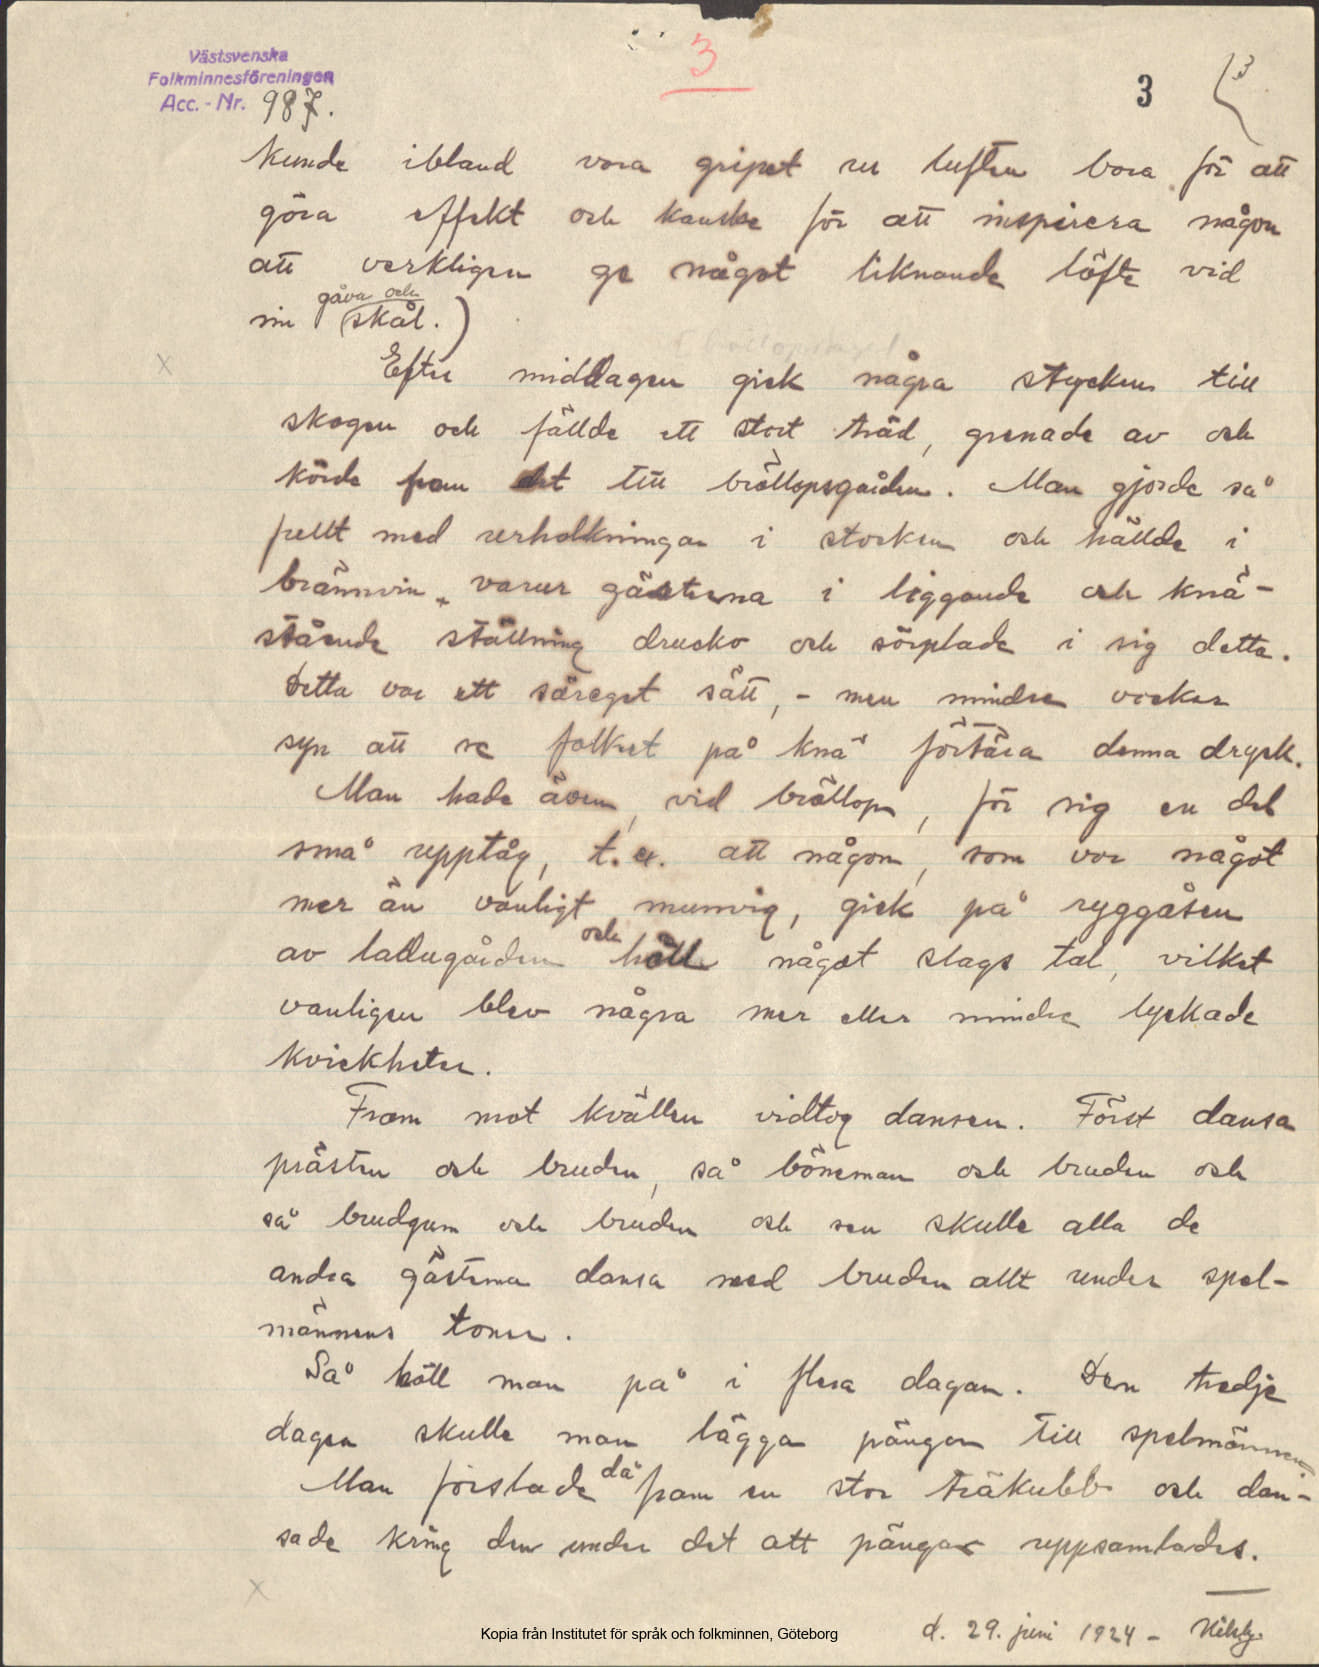 3
Västsvenska
Folkminnesföreningen
Acc. - Nr. 987.
3
3
kunde ibland vara gripet ur luften bara för att
göra effekt och kanske för att inspirera någon
att verkligen ge något liknande löfte vid
gåva och
sin (skål.)
Efter middagen gick några stycken till
skogen och fällde ett stort träd, grenade av och
körde fram det till bröllopsgården. Man gjorde så
fullt med urholkningar i stocken och hällde i
brännvin, varur gästerna i liggande och knä-
stående ställning drucko och sörplade i sig detta.
Detta var ett säreget sätt, - men mindre vacker
syn att se folket på knä förtära denna dryck.
Man hade även, vid bröllop, för sig en del
små upptåg, t.ex. att någon, som var något
mer än vanligt munvig, gick på ryggåsen
av ladugården och höll något slags tal, vilket
vanligen blev några mer eller mindre lyckade
kvickheter.
Fram mot kvällen vidtog dansen. Först dansa
prästen och bruden, så böneman och bruden och
så brudgum och bruden och sen skulle alla de
andra gästerna dansa med bruden allt under spel-
männens toner.
Så höll man på i flera dagar. Den tredje
dagen skulle man lägga pängar till spelmännen.
Man förslade då fram en stor träkubb och dan-
sade kring den under det att pängar uppsamlades.
d. 29. juni 1924 -
Kopia från Institutet för språk och folkminnen, Göteborg